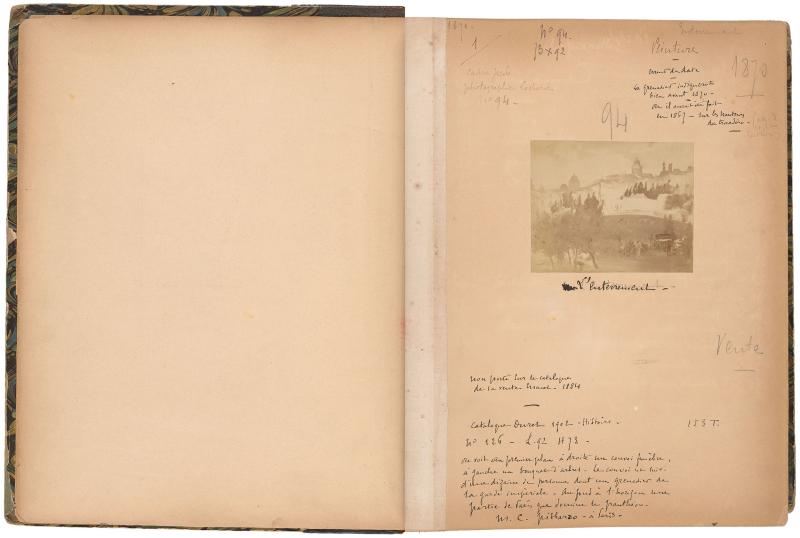 1870.
1
N° 94.
73 x 92
Enterrement
Peinture
1870
avant la date
Le grenadier indiquerait
bien avant 1870 -
où il aurait été fait
en 1867 - sur les hauteurs
du Trocadéro -
photographie Lochard
n° 94 -
94
L'enterrement -
Vente
non porté sur le catalogue
de la vente Manet - 1884
Catalogue Duret 1902 - Histoire -
153 T.
N° 126 - L. 92 H 73 -
On voit au premier plan à droite un convoi funèbre,
à gauche un bouquet d'arbres - Le convoi est suivi
d'une dizaine de personnes dont un grenadier de
la garde impériale - Au fond à l'horizon une
partie de Paris que domine le Panthéon -
M. C. Pissarro - à Paris -